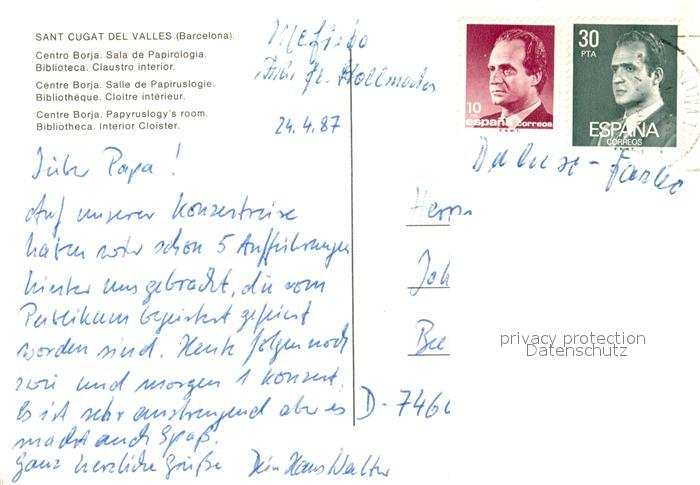 SANT CUGAT DEL VALLES (Barcelona).
Centro Borja. Sala de Papirologia.
Biblioteca. Claustro interior.
Centre Borja. Salle de Papiruslogie.
Bibliothèque. Cloitre intérieur.
Centre Borja. Papyruslogy's room.
Bibliotheca. Interior Cloister.
24.4.87
10
españa correos
30
PTA
ESPAÑA
CORREOS
F.N.M.T.
Lieber Papa!
Auf unserer Konzertreise
haben wir schon 5 Aufführungen
hinter uns gebracht, die vom
Publikum begeistert gefeiert
worden sind. Heute folgen noch
zwei und morgen 1 Konzert.
Es ist sehr anstrengend aber es
macht auch Spaß.
Ganz herzliche Grüße Dein Hans Walter
Herrn
Joh
D-746
privacy protection
Datenschutz